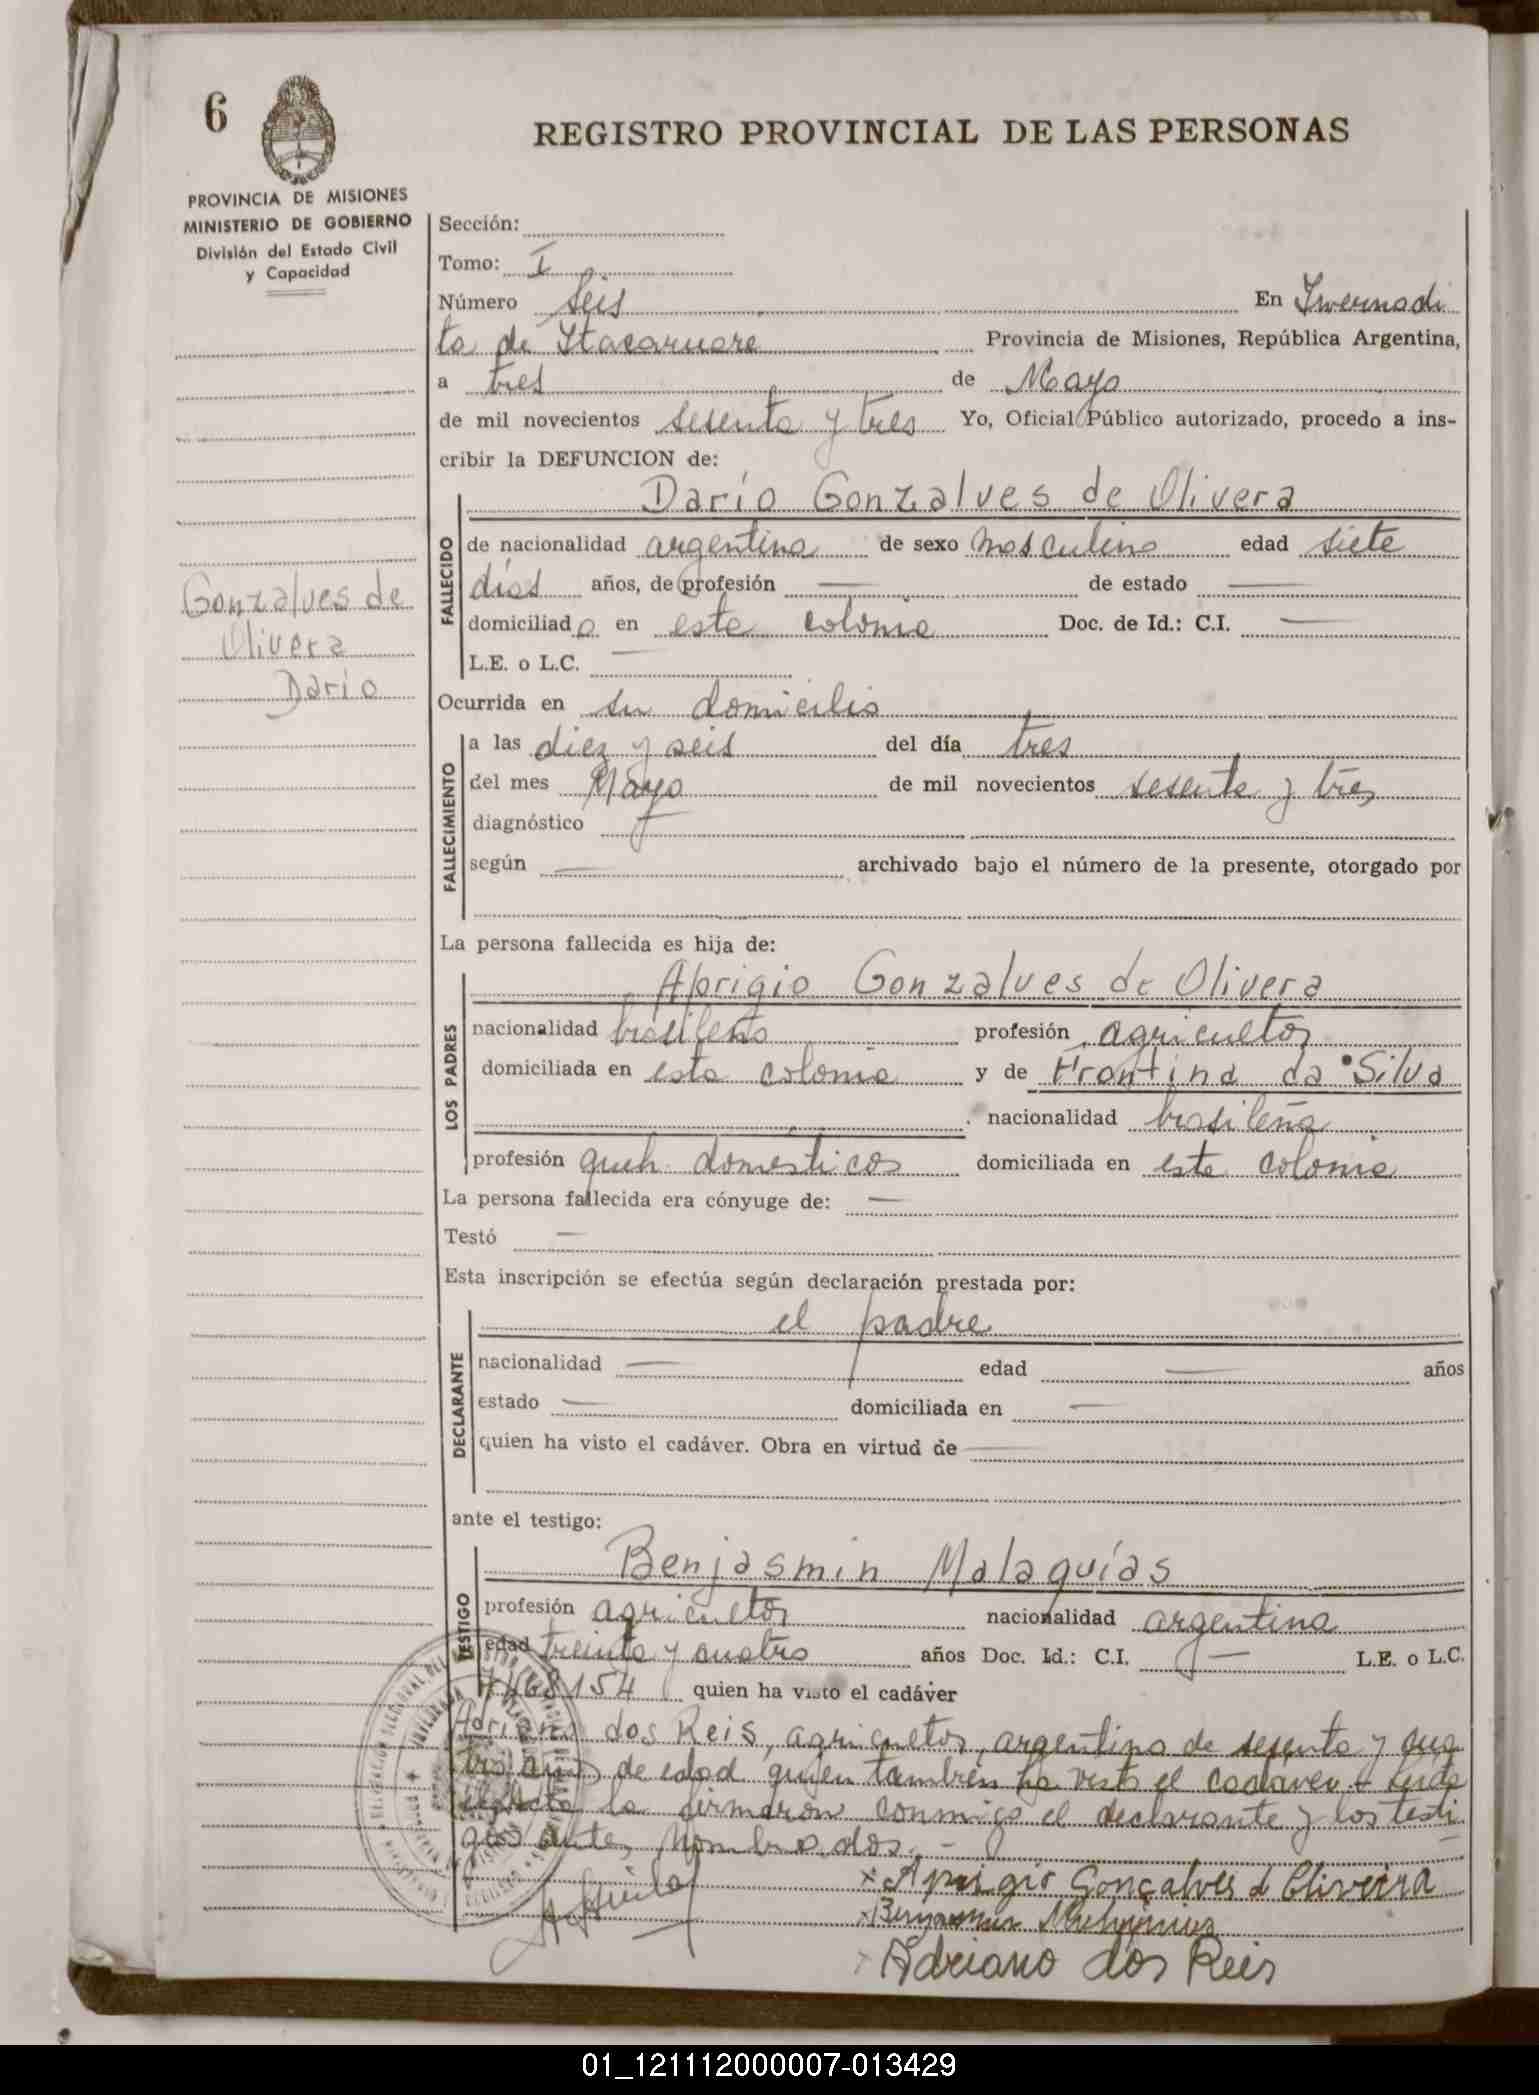 6
REGISTRO PROVINCIAL DE LAS PERSONAS
PROVINCIA DE MISIONES
MINISTERIO DE GOBIERNO
División del Estado Civil
y Capacidad
Sección:
Tomo: I
Número seis En Invernadi
ta de Itacaruare Provincia de Misiones, República Argentina,
a tres de Mayo
de mil novecientos sesenta y tres Yo, Oficial Público autorizado, procedo a ins-
cribir la DEFUNCION de:
Darío Gonzalves de Olivera
FALLECIDO
de nacionalidad argentina de sexo masculino edad siete
días años, de profesión — de estado —
domiciliado en esta colonia Doc. de Id.: C.I. —
L.E. o L.C. —
Gonzalves de
Olivera
Darío
Ocurrida en su domicilio
FALLECIMIENTO
a las diez y seis del día tres
del mes Mayo de mil novecientos sesenta y tres
diagnóstico
según — archivado bajo el número de la presente, otorgado por
La persona fallecida es hija de:
LOS PADRES
Aprigio Gonzalves de Olivera
nacionalidad brasileño profesión agricultor
domiciliada en esta colonia y de Frontina da Silva
nacionalidad brasileña
profesión queh. domésticos domiciliada en esta colonia
La persona fallecida era cónyuge de: —
Testó —
Esta inscripción se efectúa según declaración prestada por:
DECLARANTE
el padre
nacionalidad — edad — años
estado — domiciliada en —
quien ha visto el cadáver. Obra en virtud de —
ante el testigo:
TESTIGO
Benjasmin Malaquías
profesión agricultor nacionalidad argentina
edad treinta y cuatro años Doc. Id.: C.I. — L.E. o L.C.
68154 quien ha visto el cadáver
Adriano dos Reis, agricultor, argentino de sesenta y cua
tro años de edad quien también ha visto el cadaver - Leida
el acta la firmaron conmigo el declarante y los testi
gos antes nombrados. -
x Aprigio Gonçalves d Oliveira
x Adriano dos Reis
01_121112000007-013429